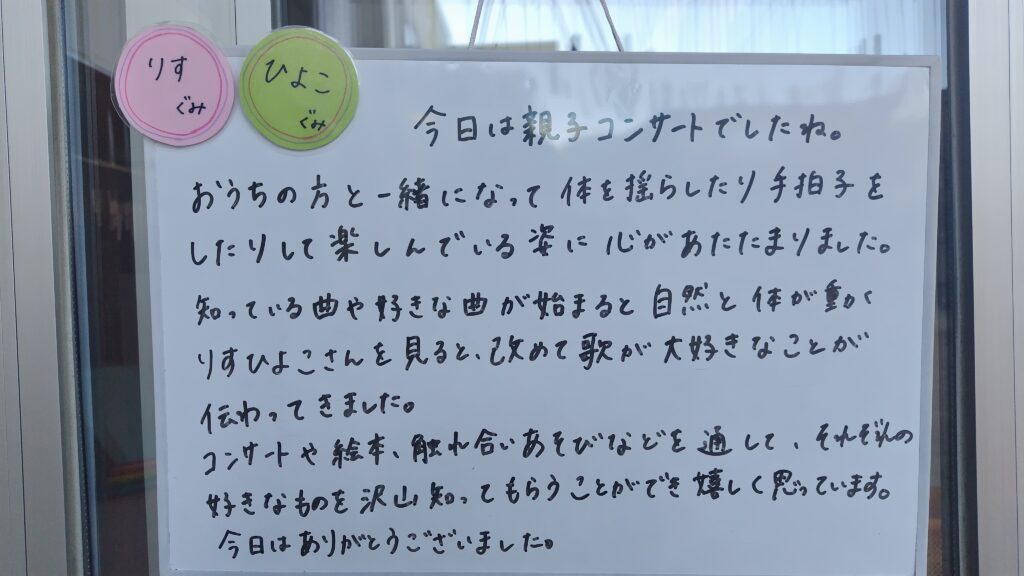 りす
ぐみ
ひよこ
ぐみ
今日は親子コンサートでしたね。
おうちの方と一緒になって体を揺らしたり手拍子を
したりして楽しんでいる姿に心があたたまりました。
知っている曲や好きな曲が始まると自然と体が動く
りすひよこさんを見ると、改めて歌が大好きなことが
伝わってきました。
コンサートや絵本、触れ合いあそびなどを通して、それぞれの
好きなものを沢山知ってもらうことができ嬉しく思っています。
今日はありがとうございました。